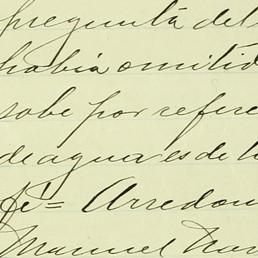 pregunta del
habia omitid
sabe por refere
de aguas es de l
fé = Arredon
Manuel Nav